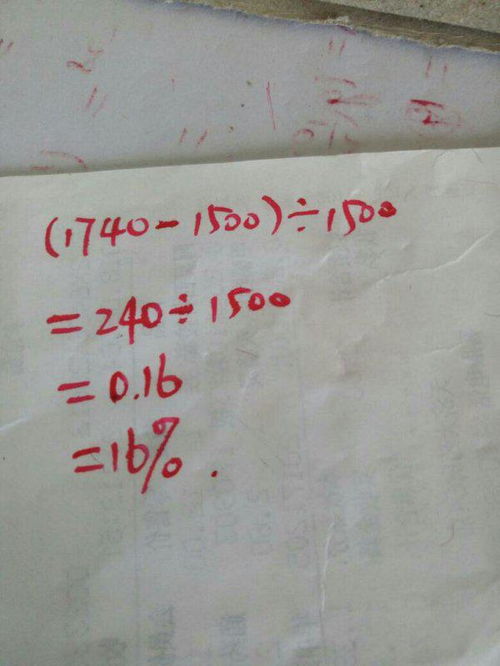 (1740-1500)÷1500
=240÷1500
=0.16
=16%.